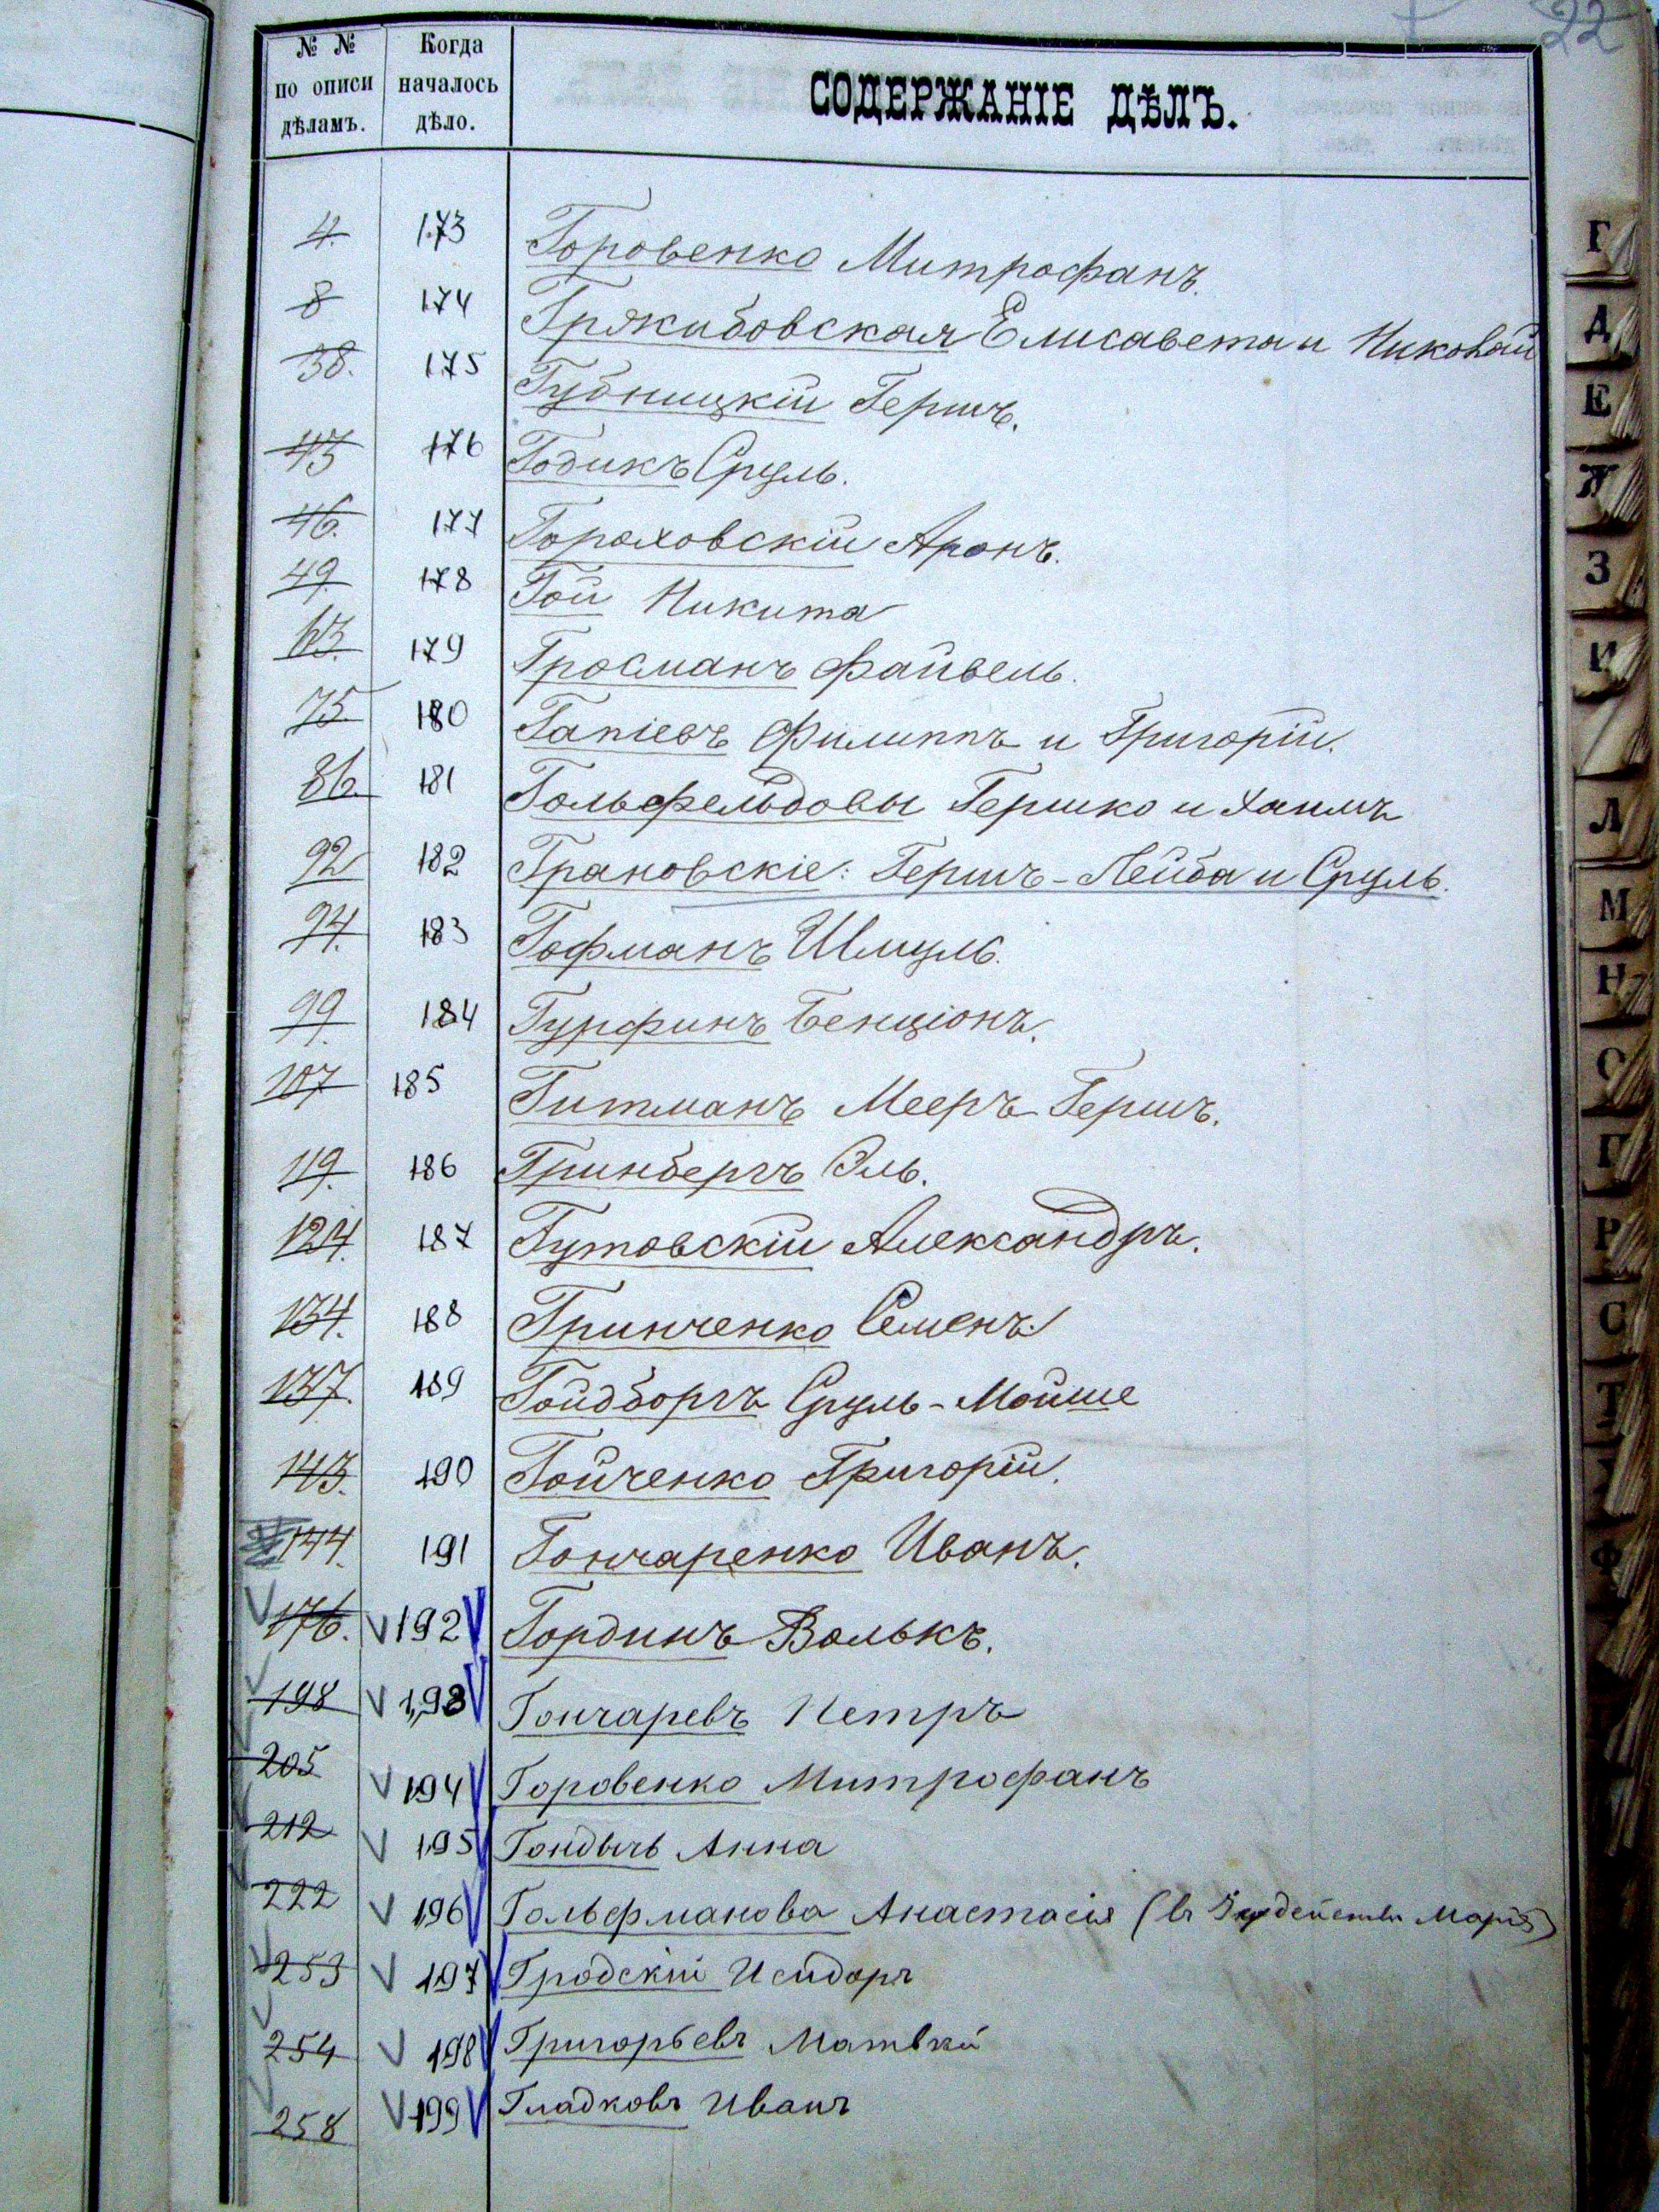 22
№ № Когда
по описи началось СОДЕРЖАНІЕ ДѢЛЪ.
дѣламъ. дѣло.
4. 173 Горовенко Митрофанъ.
8 174 Гржибовская Елисавета и Николай
38. 175 Губницкій Гершъ.
45 176 Годикъ Сруль.
46. 177 Гороховскій Аронъ.
49. 178 Гой Никита
63. 179 Гросманъ Файвель.
75. 180 Гапіевъ Филиппъ и Григорій.
86. 181 Гольфельдовы Гершко и Хаимъ
92 182 Грановскіе: Гершъ-Лейба и Сруль.
94. 183 Гофманъ Шмуль.
99. 184 Гурфинъ Бенціонъ.
107 185 Гитманъ Мееръ Гершъ.
119. 186 Гринбергъ Эль.
124. 187 Гутовскій Александръ.
134. 188 Гринченко Семенъ
137. 189 Гойдборгъ Сруль-Мойше
143. 190 Гойченко Григорій.
144. 191 Гончаренко Иванъ.
176. 192 Гординъ Волькъ.
198 193 Гончаревъ Петръ
205 194 Горовенко Митрофанъ
212 195 Гондычъ Анна
222 196 Гольфманова Анастасія (въ Іудействѣ Марія)
253 197 Гродскій Исидоръ
254 198 Григорьевъ Матвѣй
258 199 Гладковъ Иванъ
Г
Д
Е
Ж
З
И
Л
М
Н
О
П
Р
С
Т
Ф